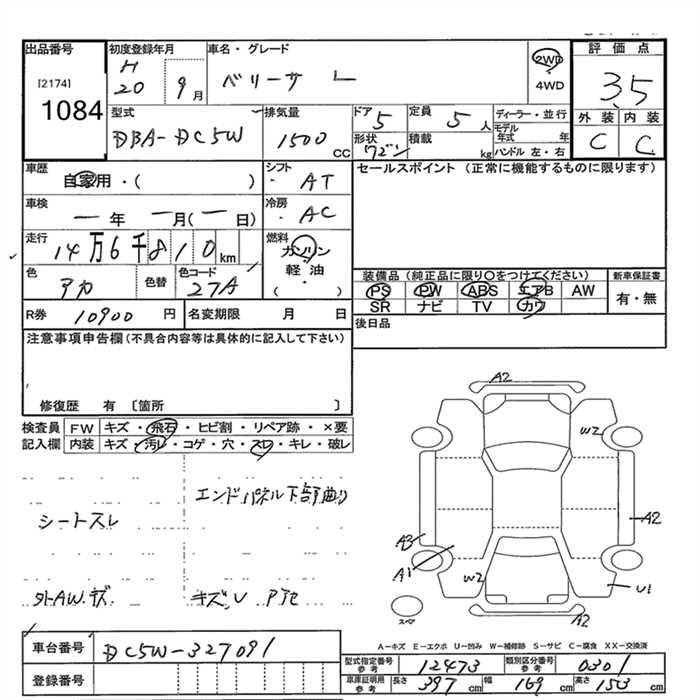 出品番号 初度登録年月 車名・グレード 評価点
[2174] H 20 9月 ベリーサ L 2WD 4WD 3.5
1084 型式 排気量 ドア 5 定員 5人 ディーラー・並行 外装 内装
DBA-DC5W 1500CC 形状 ワゴン 積載 kg モデル年式 年 C C
ハンドル 左・右
車歴 シフト セールスポイント (正常に機能するものに限ります)
自家用・( ) ・ AT
車検 冷房
ー年 ー月(ー日) ・ AC
走行 燃料
14万6千810km ガソリン・軽油
色 色替 色コード ( ) 装備品 (純正品に限り○をつけてください) 新車保証書
アカ 27A PS PW ABS エアB AW 有・無
R券 10900円 名変期限 月 日 SR ナビ TV カワ
後日品
注意事項申告欄(不具合内容等は具体的に記入して下さい)
修復歴 有 〔箇所 〕
検査員 FW キズ・飛石・ヒビ割・リペア跡・×要
記入欄 内装 キズ・汚レ・コゲ・穴・スレ・キレ・破レ
A2
W2
エンドパネル下部曲り
シートスレ
A2
A3
A1
W2
U1
外AW.キズ キズU アアセ
スペア
A2
A-キズ E-エクボ U-凹み W-補修跡 S-サビ C-腐食 XX-交換済
車台番号 DC5W-327091
型式指定番号 参考 12473 類別区分番号 参考 0301
登録番号
車庫証明用 参考 長さ 397cm 幅 169cm 高さ 153cm